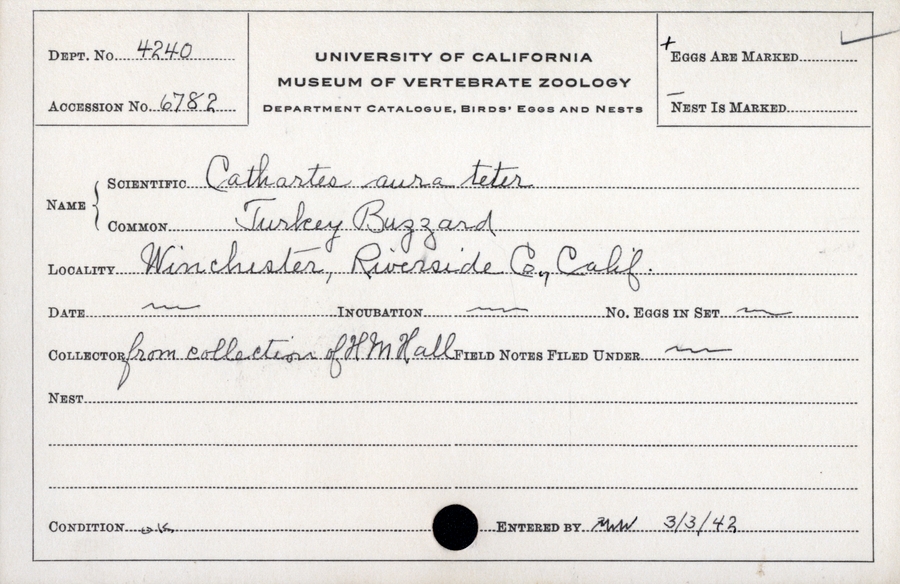 DEPT. No. 4240
ACCESSION No. 6782
UNIVERSITY OF CALIFORNIA
MUSEUM OF VERTEBRATE ZOOLOGY
DEPARTMENT CATALOGUE, BIRDS' EGGS AND NESTS
+ EGGS ARE MARKED
– NEST IS MARKED
NAME
SCIENTIFIC Cathartes aura teter
COMMON Turkey Buzzard
LOCALITY Winchester, Riverside Co., Calif.
DATE — INCUBATION — No. EGGS IN SET —
COLLECTOR from collection of H M Hall FIELD NOTES FILED UNDER —
NEST
CONDITION ok ENTERED BY 3/3/42